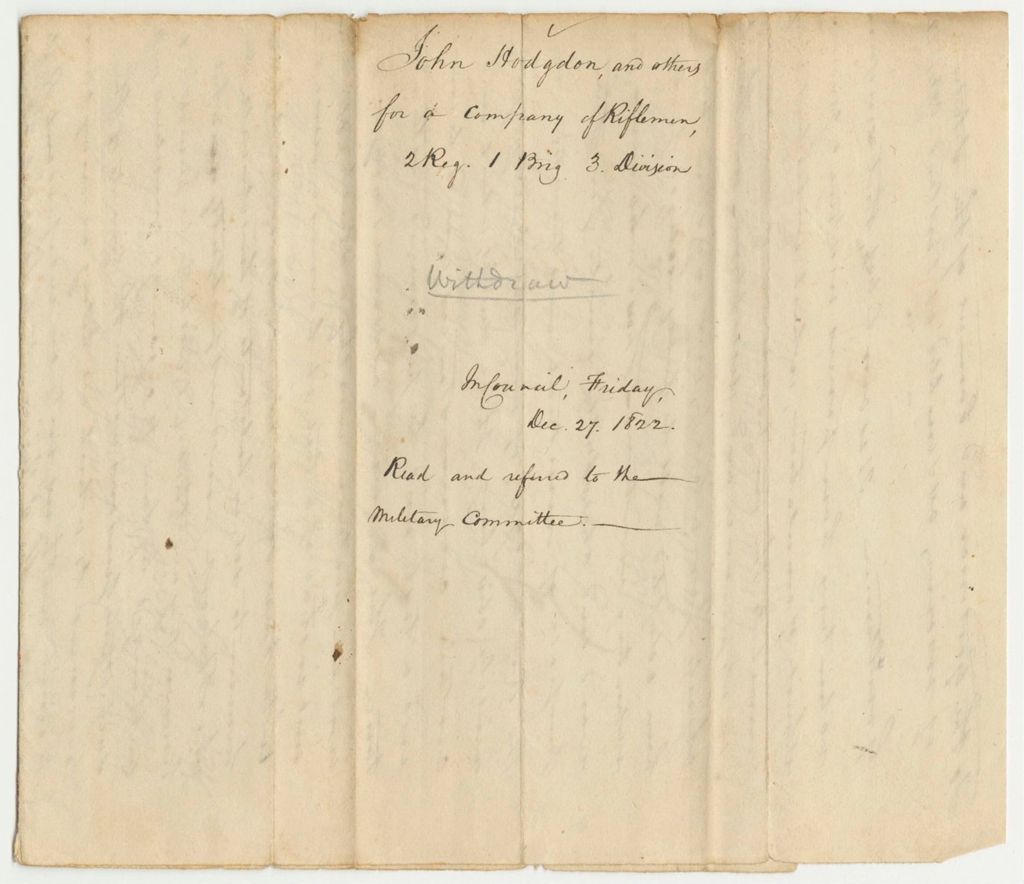 John Hodgdon, and others
for a company of Riflemen,
2 Reg. 1 Brig 3. Division
Withdraw
In Council, Friday,
Dec. 27. 1822.
Read and referred to the
Military Committee.